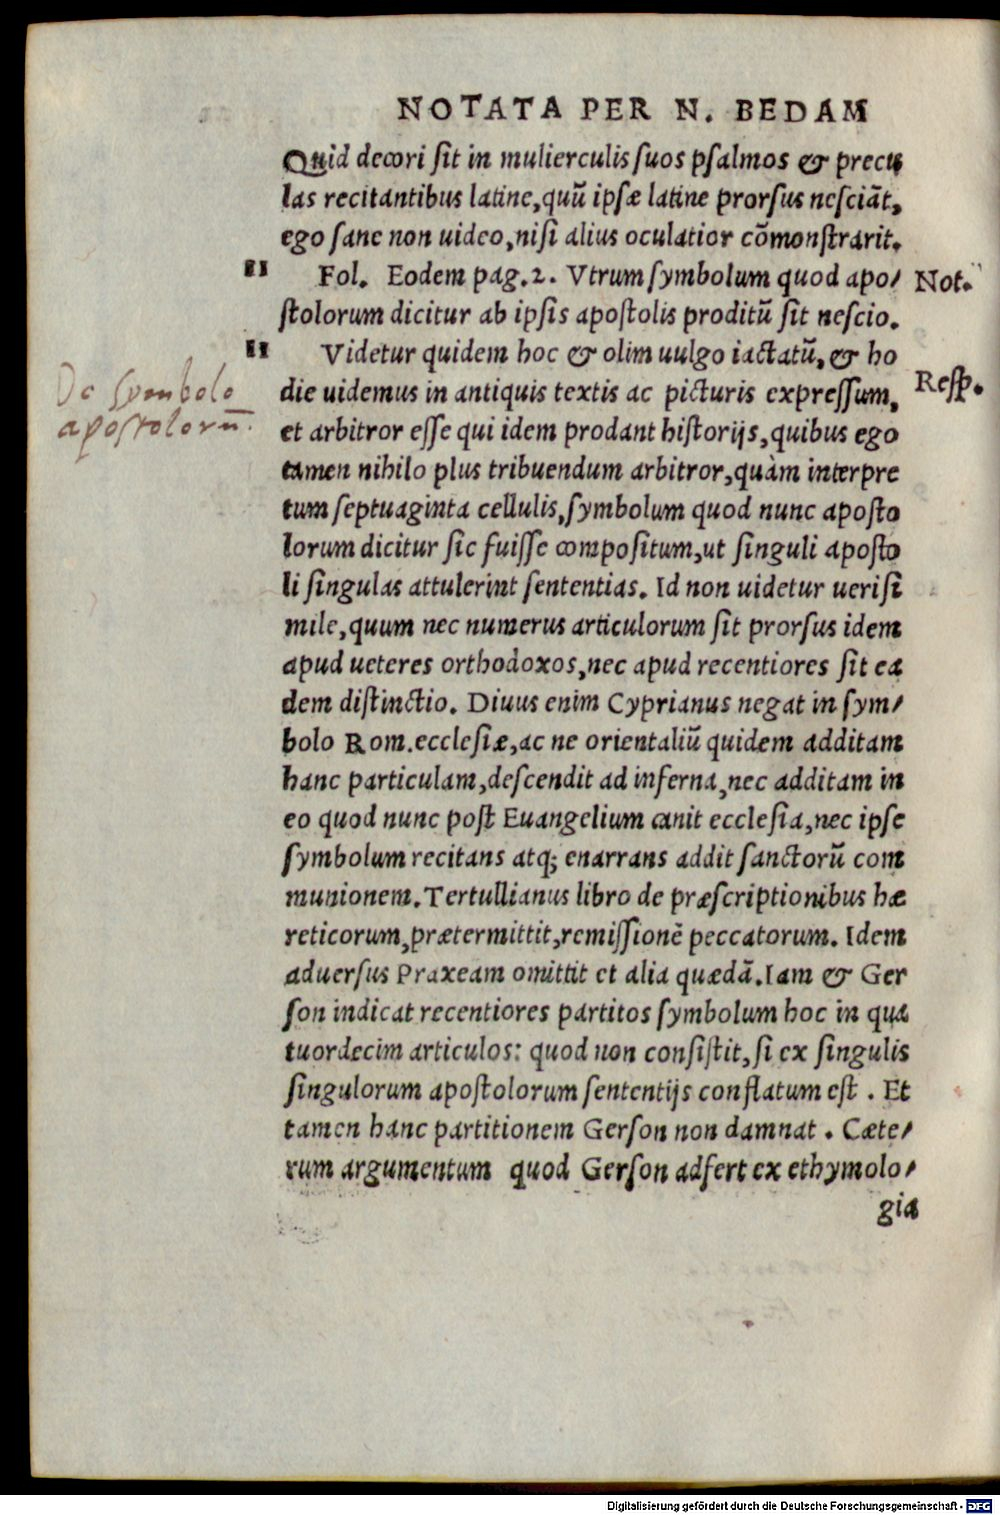 NOTATA PER N. BEDAM
Quid decori sit in mulierculis suos psalmos & precu
las recitantibus latine, quũ ipsæ latine prorsus nesciãt,
ego sane non uideo, nisi alius oculatior cõmonstrarit.
11 Fol. Eodem pag.2. Vtrum symbolum quod apo- Not.
stolorum dicitur ab ipsis apostolis proditũ sit nescio.
11 Videtur quidem hoc & olim uulgo iactatũ, & ho
De symbolo
apostolorũ.
die uidemus in antiquis textis ac picturis expressum, Resp.
et arbitror esse qui idem prodant historijs, quibus ego
tamen nihilo plus tribuendum arbitror, quàm interpre
tum septuaginta cellulis, symbolum quod nunc aposto
lorum dicitur sic fuisse compositum, ut singuli aposto
li singulas attulerint sententias. Id non uidetur uerisi
mile, quum nec numerus articulorum sit prorsus idem
apud ueteres orthodoxos, nec apud recentiores sit ea
dem distinctio. Diuus enim Cyprianus negat in sym-
bolo Rom. ecclesiæ, ac ne orientaliũ quidem additam
hanc particulam, descendit ad inferna, nec additam in
eo quod nunc post Euangelium canit ecclesia, nec ipse
symbolum recitans atq; enarrans addit sanctorũ com
munionem. Tertullianus libro de præscriptionibus hæ
reticorum, prætermittit, remissionẽ peccatorum. Idem
aduersus Praxeam omittit et alia quædã. Iam & Ger
son indicat recentiores partitos symbolum hoc in qua
tuordecim articulos: quod non consistit, si ex singulis
singulorum apostolorum sententijs conflatum est. Et
tamen hanc partitionem Gerson non damnat. Cæte-
rum argumentum quod Gerson adfert ex ethymolo-
gia
Digitalisierung gefördert durch die Deutsche Forschungsgemeinschaft - DFG